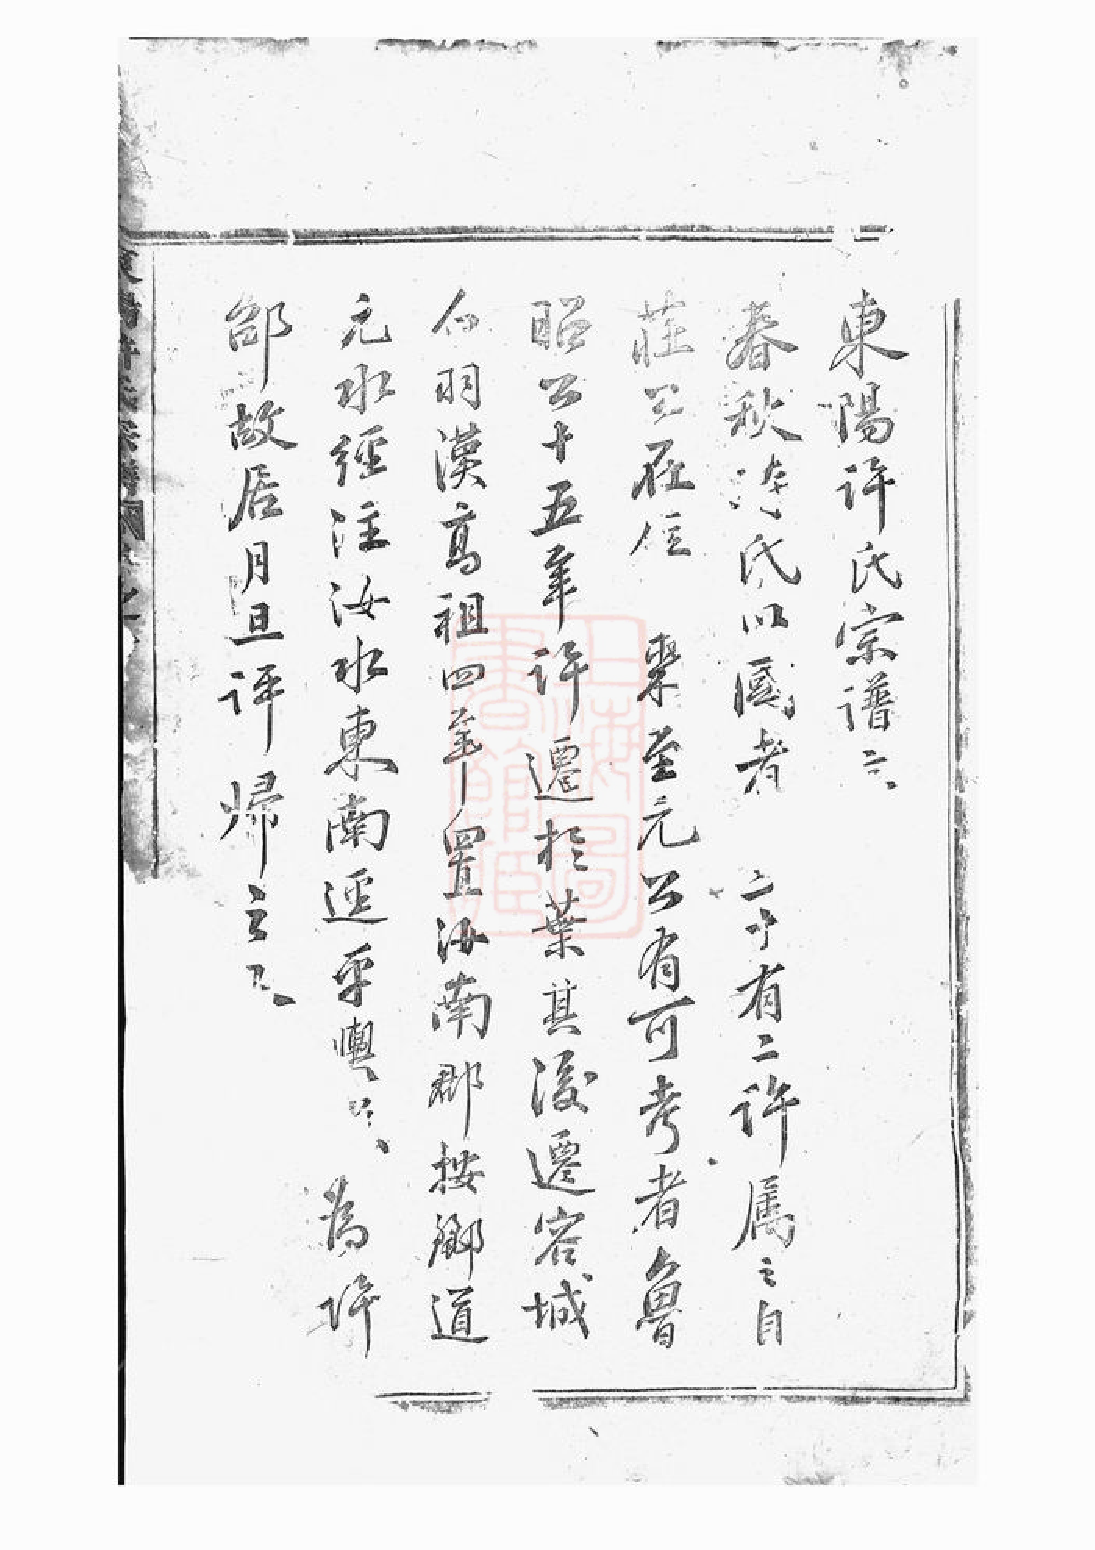 東陽許氏宗譜
春秋時氏以國者二十有二許屬之自
莊公在位繫至元公有可考者魯
昭公十五年許遷於葉其後遷容城
白羽漢高祖四年置汝南郡按酈道
元水經注汝水東南逕平輿為許
邵故居月旦評歸之
上海圖書館藏